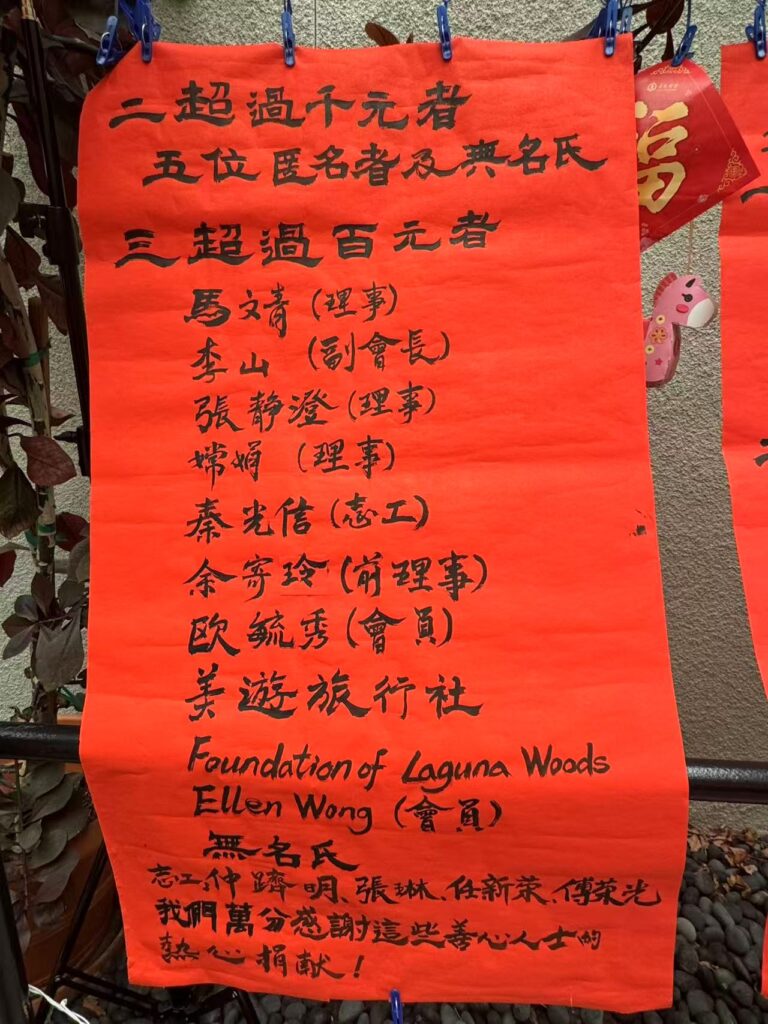 二超過千元者
五位匿名者及無名氏
三超過百元者
馬文靖(理事)
李山 (副會長)
張靜澄(理事)
嫦娟 (理事)
秦光信(志工)
余寄玲(前理事)
歐毓秀(會員)
美遊旅行社
Foundation of Laguna Woods
Ellen Wong (會員)
無名氏
志工:仲躋明、張琳、任新榮、傅榮光
我們萬分感謝這些善心人士的
熱心捐献!
福